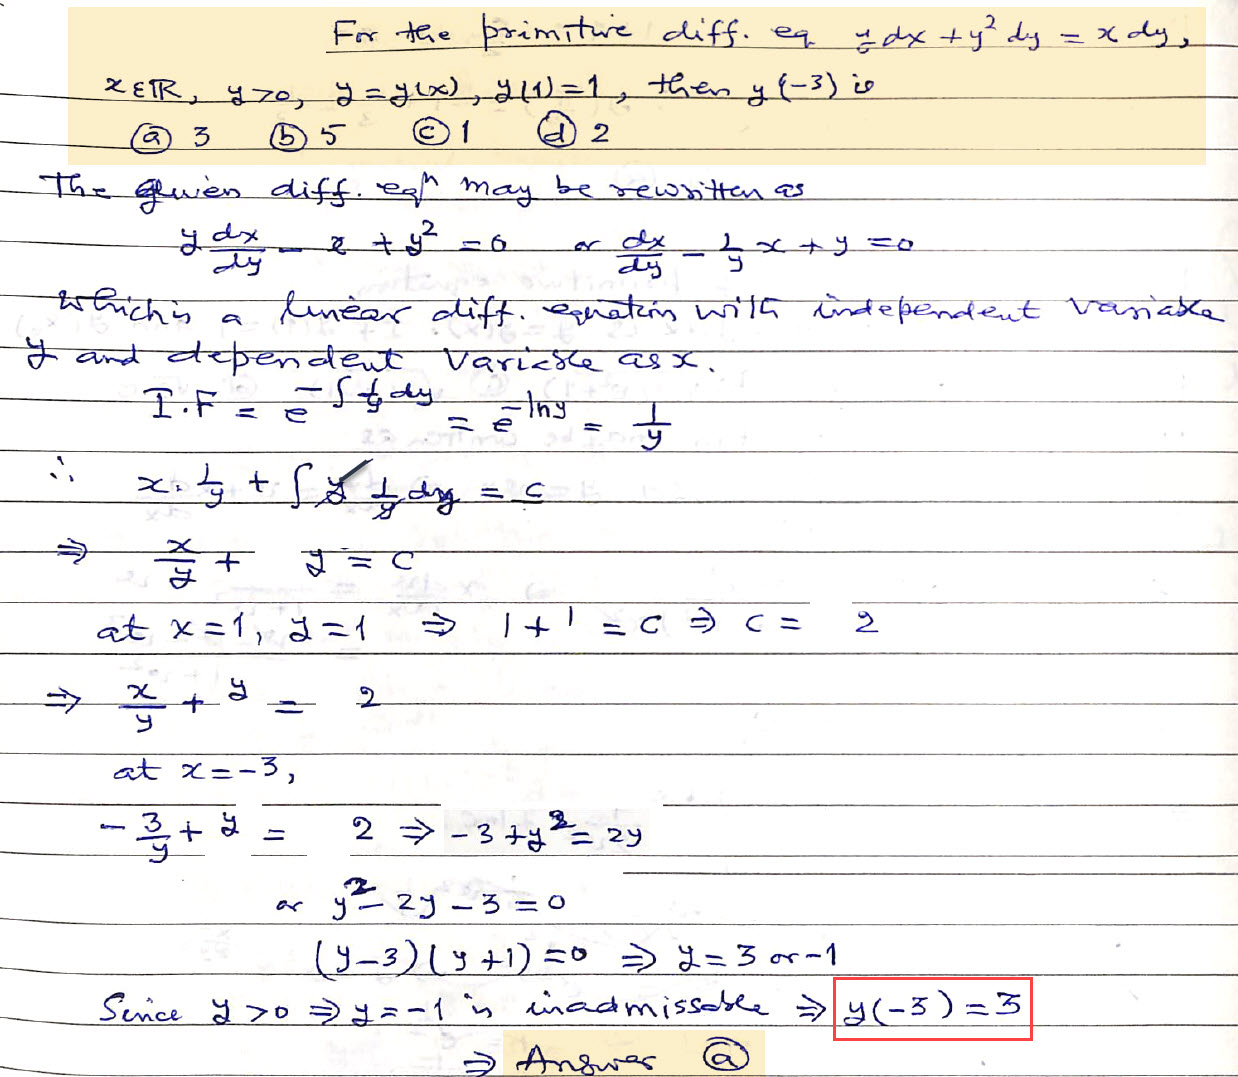 For the primitive diff. eq y dx + y² dy = x dy,
x ∈ ℝ, y>0, y = y(x), y(1)=1, then y(-3) is
ⓐ 3 ⓑ 5 ⓒ 1 ⓓ 2
The given diff. eqⁿ may be rewritten as
y dx/dy - x + y² = 0 or dx/dy - 1/y x + y = 0
Which is a linear diff. equation with independent variable
y and dependent variable as x.
I.F = e^(-∫ 1/y dy) = e^(-ln y) = 1/y
∴ x. 1/y + ∫ y 1/y dy = c
⇒ x/y + y = c
at x=1, y=1 ⇒ 1+1 = c ⇒ c = 2
⇒ x/y + y = 2
at x=-3,
-3/y + y = 2 ⇒ -3 + y² = 2y
or y² - 2y - 3 = 0
(y-3)(y+1)=0 ⇒ y=3 or -1
Since y>0 ⇒ y=-1 is inadmissable ⇒ y(-3)=3
⇒ Answer ⓐ